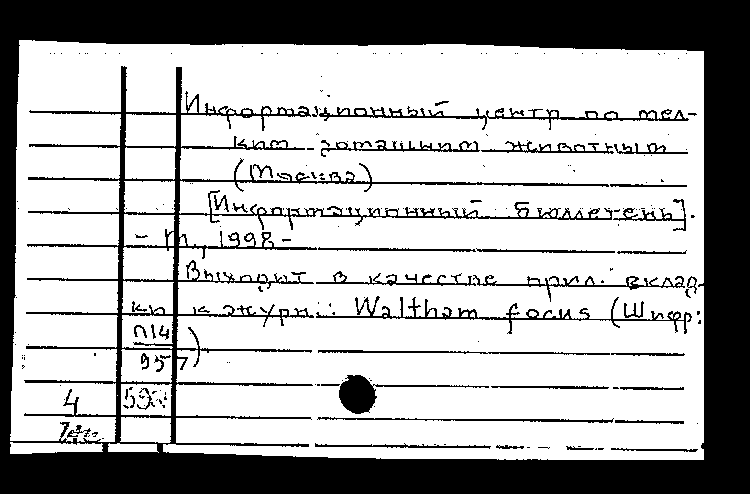 Информационный центр по мел-
ким домашним животным
(Москва)
[Информационный бюллетень].
- М., 1998-
Выходит в качестве прил. вклад-
ки к журн.: Waltham focus (Шифр:
П14
957)
4